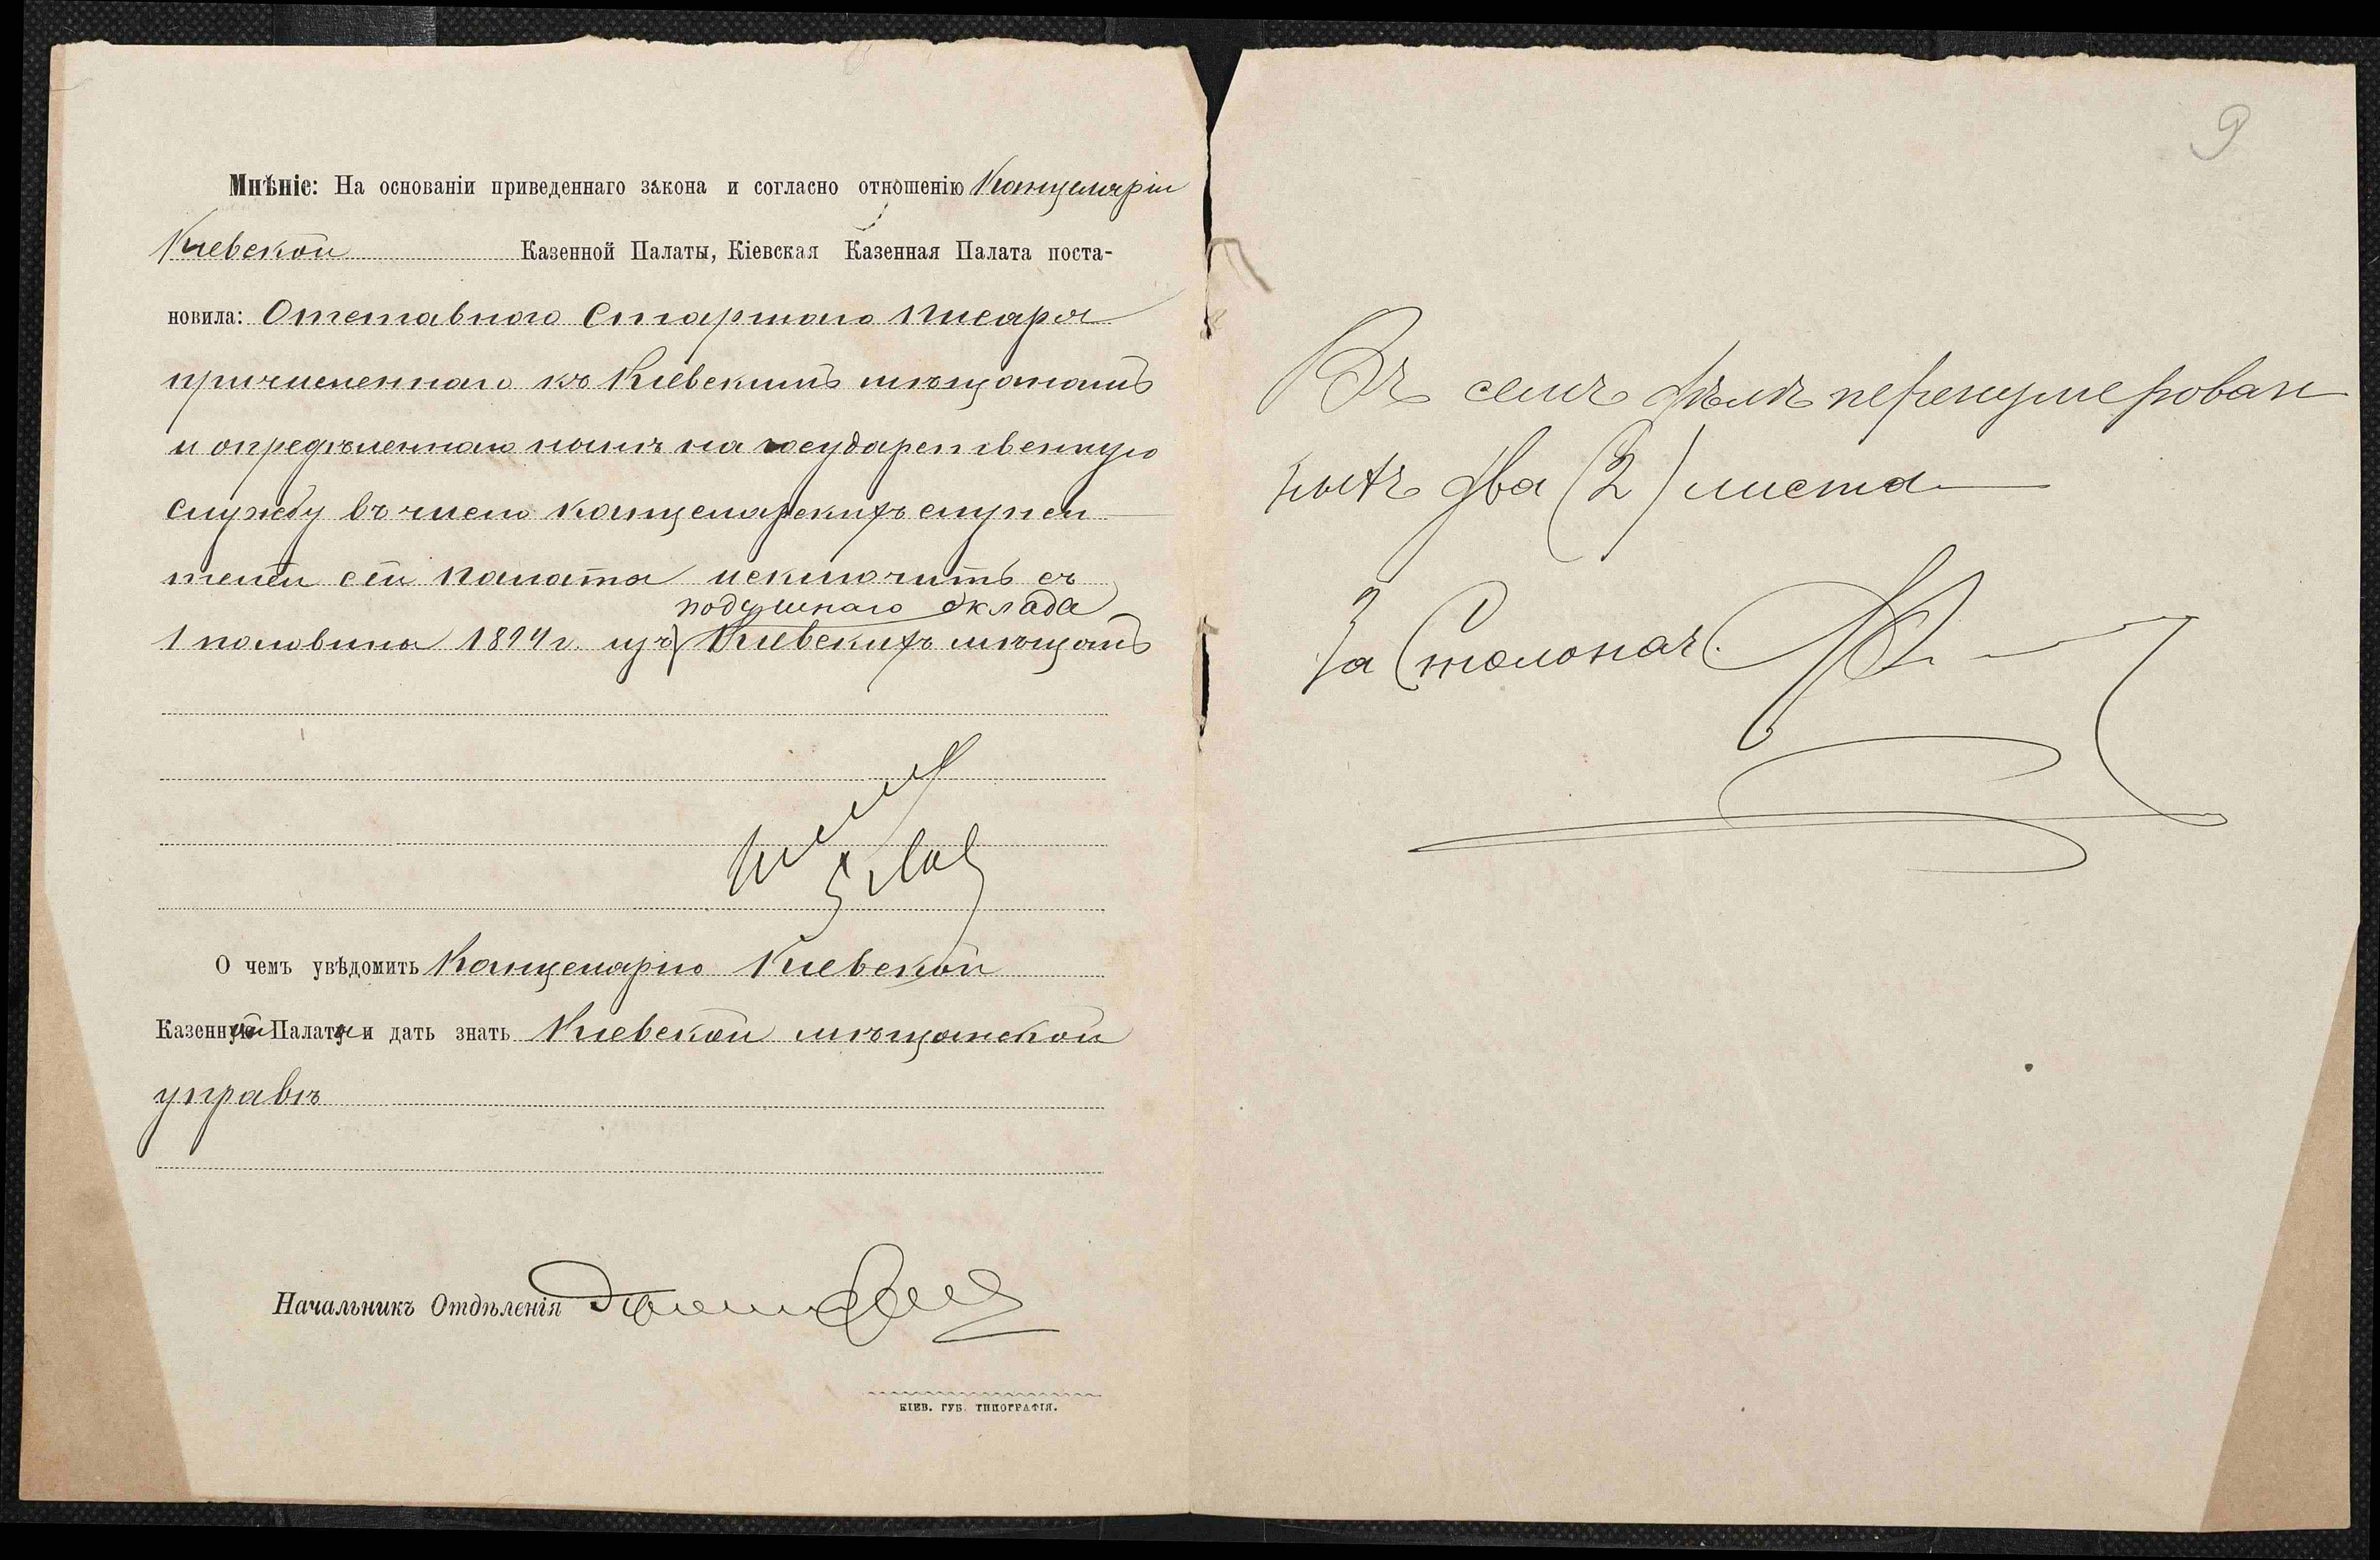 Мнѣніе: На основаніи приведеннаго закона и согласно отношенію Канцеляріи
Кіевской Казенной Палаты, Кіевская Казенная Палата поста-
новила: Отставного Старшаго писаря
причисленнаго къ Кіевскимъ мѣщанамъ
и опредѣленнаго нынѣ на государственную
службу въ число канцелярскихъ служи
телей сей палаты исключить съ
подушнаго оклада
1 половины 1894 г. изъ Кіевскихъ мѣщанъ
О чемъ увѣдомить Канцелярію Кіевской
Казенной Палаты и дать знать Кіевской мѣщанской
управѣ
Начальникъ Отдѣленія
КІЕВ. ГУБ. ТИПОГРАФІЯ.
9
Въ семъ дѣлѣ перенумерован
ныхъ два (2) листа
За Столонач.